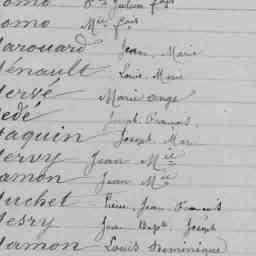 omo Julien
omo
arouard Jean, Marie
énault Louis, Marie
erve Marie ange
edé Joseph, François,
aquin Joseph, Marie
ervy Jean Mie
amon Jean Mie
uchet Pierre, Jean, François
esry Jean Bapte, Joseph
amon Louis Dominique